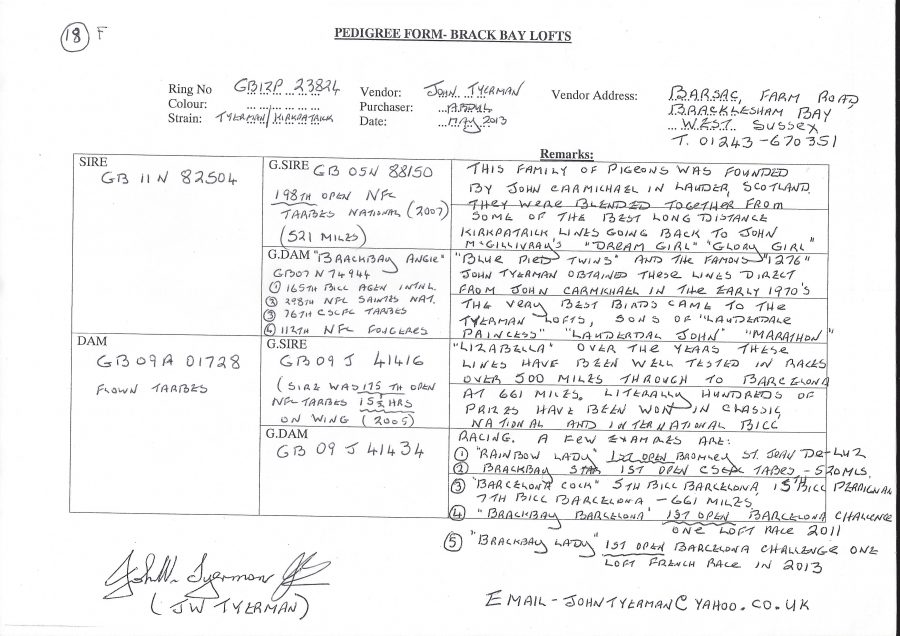 18 F
PEDIGREE FORM- BRACK BAY LOFTS
Ring No GB12P 23824
Colour:
Strain: TYERMAN/KIRKPATRICK
Vendor: JOHN TYERMAN
Purchaser:
Date: MAY 2013
Vendor Address: BARSAC, FARM ROAD,
BRACKLESHAM BAY
WEST SUSSEX
T. 01243-670351
Remarks:
SIRE
GB 11 N 82504
G.SIRE GB 05N 88150
198TH OPEN NFC
TARBES NATIONAL (2007)
(521 MILES)
G.DAM "BRACKBAY ANGIE"
GB07 N 74944
① 165TH BILL AGEN INTNL.
② 298TH NFC SAINTES NAT.
③ 76TH CSCFC TARBES
④ 112TH NFC FOUGERES
DAM
GB 09A 01728
FLOWN TARBES
G.SIRE
GB 09 J 41416
(SIRE WAS 175 TH OPEN
NFC TARBES 15½ HRS
ON WING (2005)
G.DAM
GB 09 J 41434
THIS FAMILY OF PIGEONS WAS FOUNDED
BY JOHN CARMICHAEL IN LAUDER, SCOTLAND.
THEY WERE BLENDED TOGETHER FROM
SOME OF THE BEST LONG DISTANCE
KIRKPATRICK LINES GOING BACK TO JOHN
McGILLIVRAY'S "DREAM GIRL" "GLORY GIRL"
"BLUE PIED TWINS" AND THE FAMOUS "1276"
JOHN TYERMAN OBTAINED THESE LINES DIRECT
FROM JOHN CARMICHAEL IN THE EARLY 1970'S
THE VERY BEST BIRDS CAME TO THE
TYERMAN LOFTS, SONS OF "LAUDERDALE
PRINCESS" "LAUDERDAL JOHN" "MARATHON"
"LIZABELLA" OVER THE YEARS THESE
LINES HAVE BEEN WELL TESTED IN RACES
OVER 500 MILES THROUGH TO BARCELONA
AT 661 MILES. LITERALLY HUNDREDS OF
PRIZES HAVE BEEN WON IN CLASSIC,
NATIONAL AND INTERNATIONAL BICC
RACING. A FEW EXAMPLES ARE:
① "RAINBOW LADY" 1ST OPEN BROMLEY ST. JEAN DE-LUZ
② BRACKBAY STAR 1ST OPEN CSCFC TABES - 520 MLS.
③ "BARCELONA COCK" 5TH BICC BARCELONA 15TH BICC PERPIGNAN
7TH BICC BARCELONA - 661 MILES.
④ "BRACKBAY BARCELONA" 1ST OPEN BARCELONA CHALLENGE
ONE LOFT RACE 2011
⑤ "BRACKBAY LADY" 1ST OPEN BARCELONA CHALLENGE ONE
LOFT FRENCH RACE IN 2013
John W. Tyerman
(JW TYERMAN)
EMAIL - JOHNTYERMAN@YAHOO.CO.UK